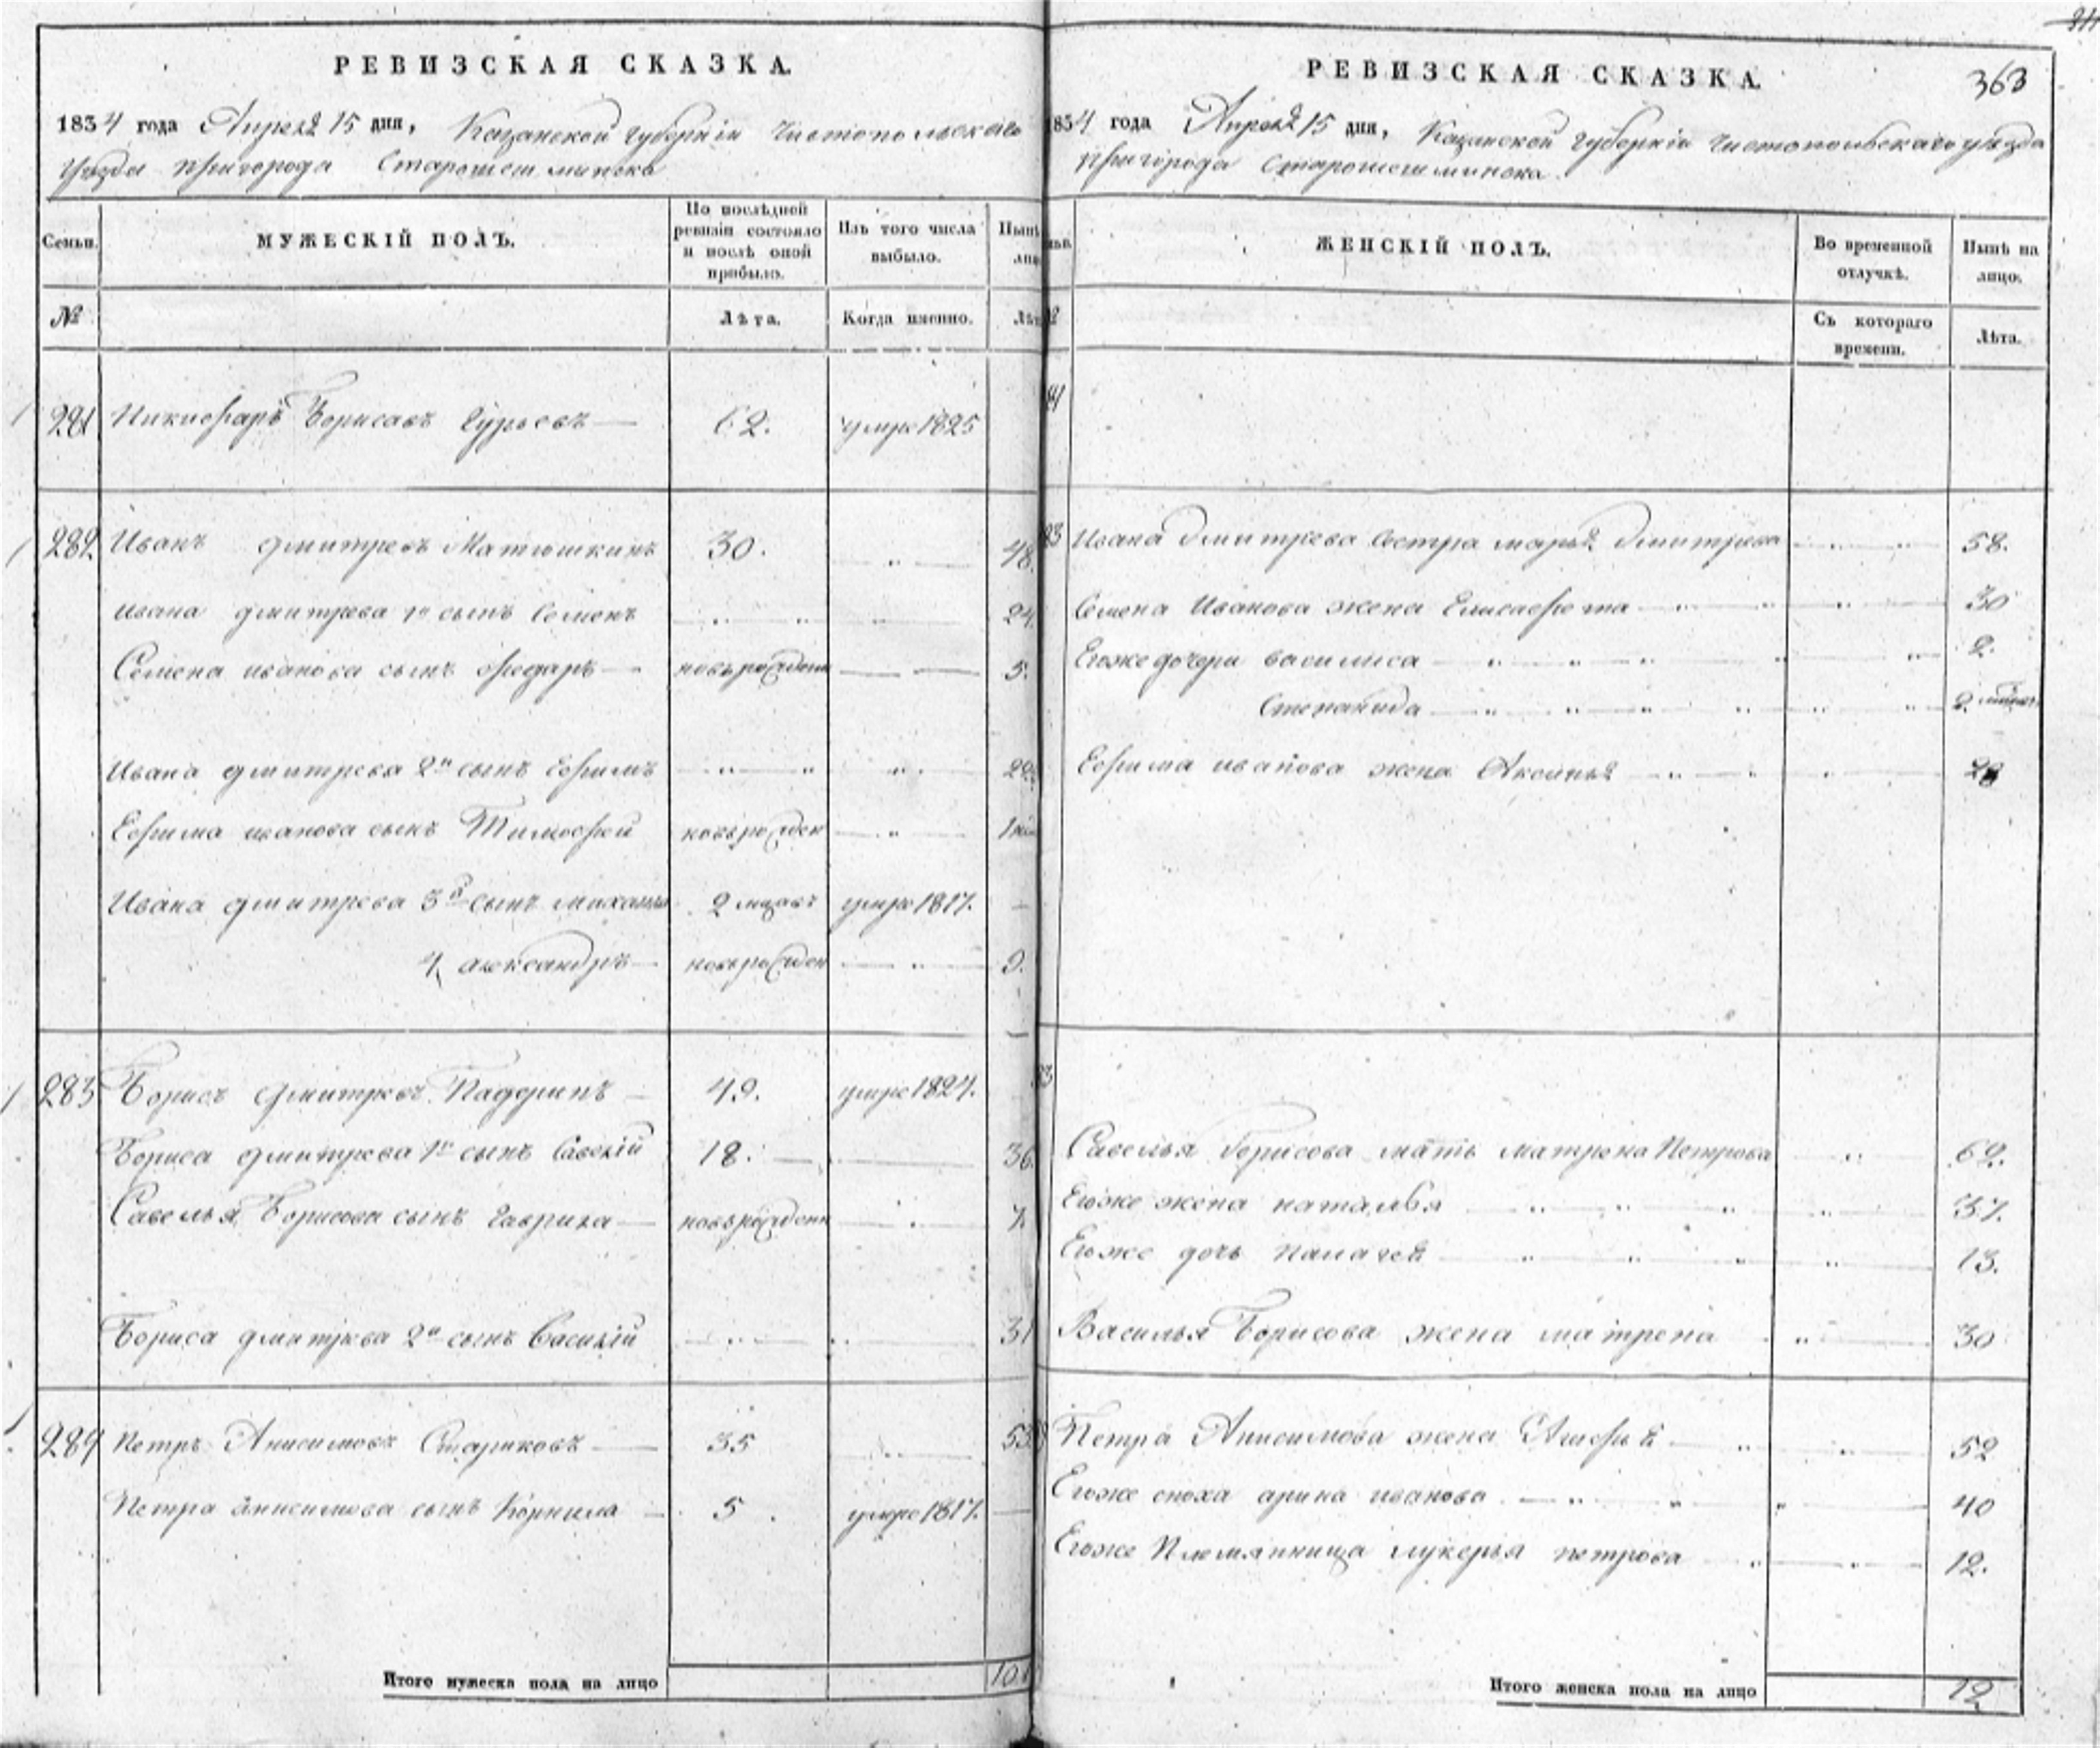 РЕВИЗСКАЯ СКАЗКА.
1834 года Апреля 15 дня, Казанской губернiи Чистопольскаго
уезда пригорода Старошешминска
Семьи. МУЖЕСКIЙ ПОЛЪ. По послѣдней ревизiи состояло и послѣ оной прибыло. Изъ того числа выбыло. Нынѣ лицо
№ Лѣта. Когда именно. Лѣт
281 Никифаръ Борисавъ Гурьевъ 62. умре 1825
282. Иванъ дмитревъ Матюшкинъ 30. 48.
Ивана дмитрева 1й сынъ Семенъ 24.
Семена иванова сынъ федаръ новърожден 5.
Ивана дмитрева 2й сынъ Ефимъ 22.
Ефима иванова сынъ Тимофей новърожден 1
Ивана дмитрева 3й сынъ михаила 2 мцавъ умре 1817.
4 александръ новърожден 9.
283 Борисъ дмитревъ Падеринъ 49. умре 1824.
Бориса дмитрева 1й сынъ Савелiй 18. 36.
Савелья Борисова сынъ гаврила новърожден 7.
Бориса дмитрева 2й сынъ Василiй 31
284 Петръ Анисимовъ Стариковъ 35 53
Петра анисимова сынъ Корнила 5. умре 1817.
Итого мужеска пола на лицо 10
РЕВИЗСКАЯ СКАЗКА. 363
1834 года Апреля 15 дня, Казанской губернiи Чистопольскаго уезда
пригорода Старошешминска.
ЖЕНСКIЙ ПОЛЪ. Во временной отлучкѣ. Нынѣ на лицо.
Съ котораго времени. Лѣта.
Ивана дмитрева сестра марья дмитрева 58.
Семена Иванова жена Елисафета 30
Егоже дочери василиса 2.
Степанида 2
Ефима иванова жена Аксинья
Савелья борисова мать матрена Петрова 62.
Егоже жена наталья 37.
Егоже дочь палагея 13.
Василья Борисова жена матрена 30
Петра Анисимова жена Агафья 52
Егоже сноха арина иванова 40
Егоже Племянница лукерья петрова 12.
Итого женска пола на лицо 12